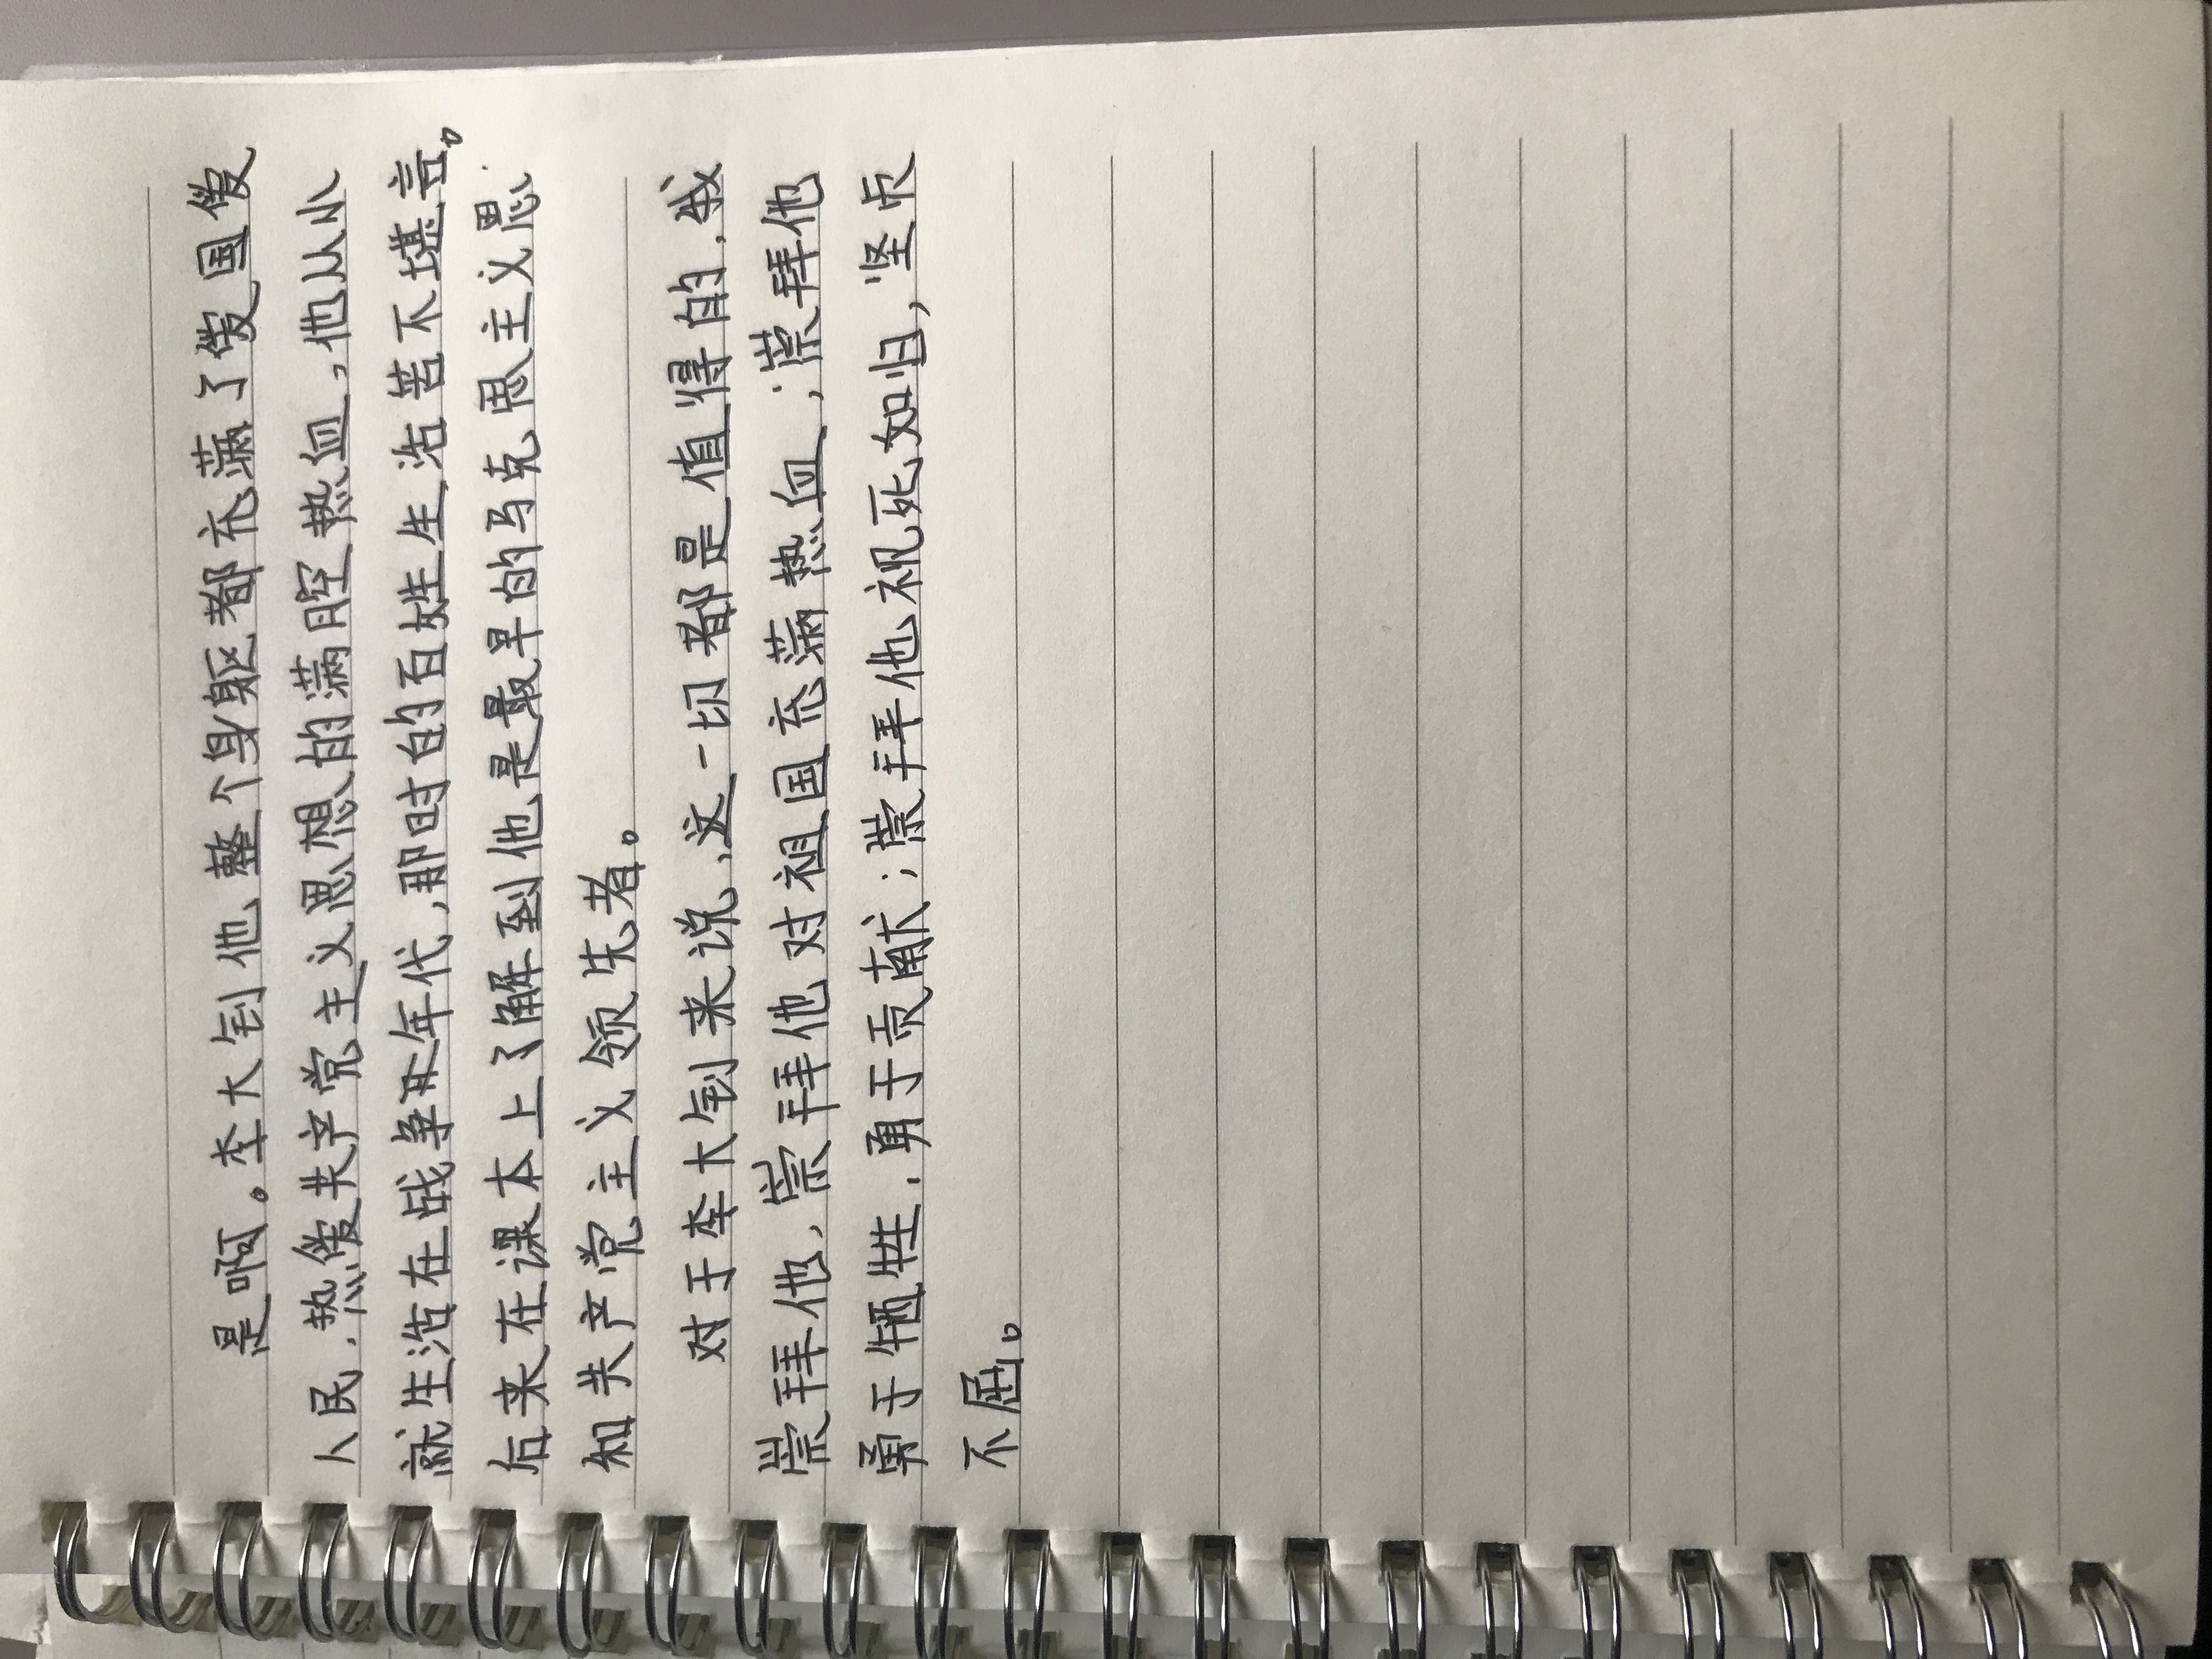 是啊。李大钊他、整个身躯都充满了爱国爱
人民，热爱共产党主义思想的满腔热血，他从小
就生活在战争开年代，那时的百姓生活苦不堪言。
后来在课本上了解到他是最早的马克思主义思
知共产党主义领先者。
对于李大钊来说，这一切都是值得的，我
崇拜他，崇拜他对祖国充满热血，崇拜他
勇于牺牲，勇于贡献；崇拜他视死如归，坚贞
不屈。